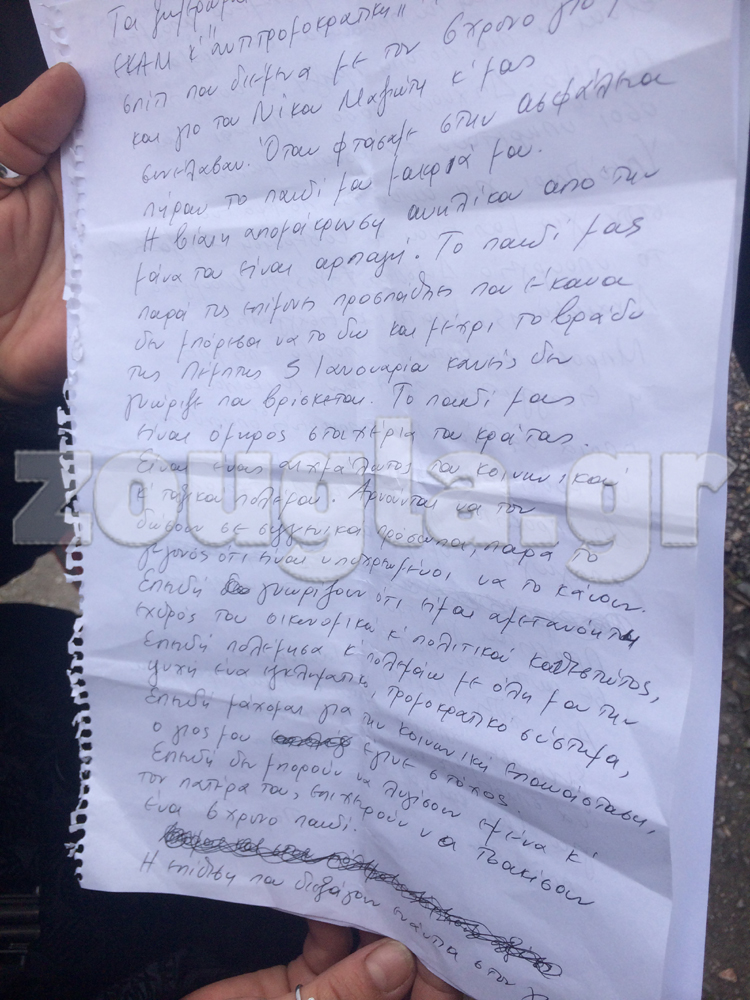 Τα ξημερώματα
ΕΚΑΜ κ' "αντιτρομοκρατική"
σπίτι που διέμενα με τον 6χρονο γιο μου
και γιο του Νίκου Μαζιώτη κ' μας
συνέλαβαν. Όταν φτάσαμε στην ασφάλεια
πήραν το παιδί μου μακριά μου.
Η βίαιη απομάκρυνση ανηλίκου από την
μάνα του είναι αρπαγή. Το παιδί μας
παρά τις επίμονες προσπάθειες που έκανα
δεν μπόρεσα να το δω και μέχρι το βράδυ
της Πέμπτης 5 Ιανουαρίου κανείς δεν
γνώριζε που βρίσκεται. Το παιδί μας
είναι όμηρος στα χέρια του κράτους.
Είναι ένας αιχμάλωτος του κοινωνικού
κ' ταξικού πολέμου. Αρνούνται να τον
δώσουν σε συγγενικά πρόσωπα, παρά το
γεγονός ότι είναι υποχρεωμένοι να το κάνουν.
Επειδή γνωρίζουν ότι είμαι αμετανόητη
εχθρός του οικονομικού κ' πολιτικού καθεστώτος,
Επειδή πολέμησα κ' πολεμάω με όλη μου την
ψυχή ένα εγκληματικό, τρομοκρατικό σύστημα,
Επειδή μάχομαι για την κοινωνική Επανάσταση,
ο γιος μου έγινε στόχος.
Επειδή δεν μπορούν να λυγίσουν εμένα κ'
τον πατέρα του, επιχειρούν να τσακίσουν
ένα 6χρονο παιδί.
Η επίθεση που διεξάγουν ενάντια στον
zougla.gr